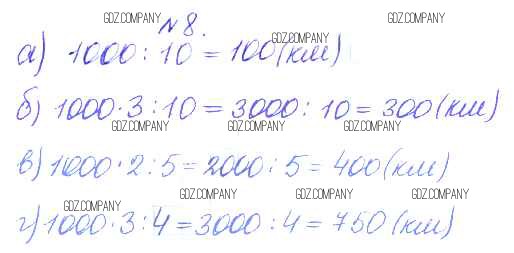 GDZ.COMPANY GDZ.COMPANY
№ 8. GDZ.COMPANY
а) 1000 : 10 = 100 (км)
б) 1000 · 3 : 10 = 3000 : 10 = 300 (км)
GDZ.COMPANY GDZ.COMPANY GDZ.COMPANY
в) 1000 · 2 : 5 = 2000 : 5 = 400 (км)
GDZ.COMPANY GDZ.COMPANY GDZ.COMPANY GDZ.COMPANY
г) 1000 · 3 : 4 = 3000 : 4 = 750 (км)